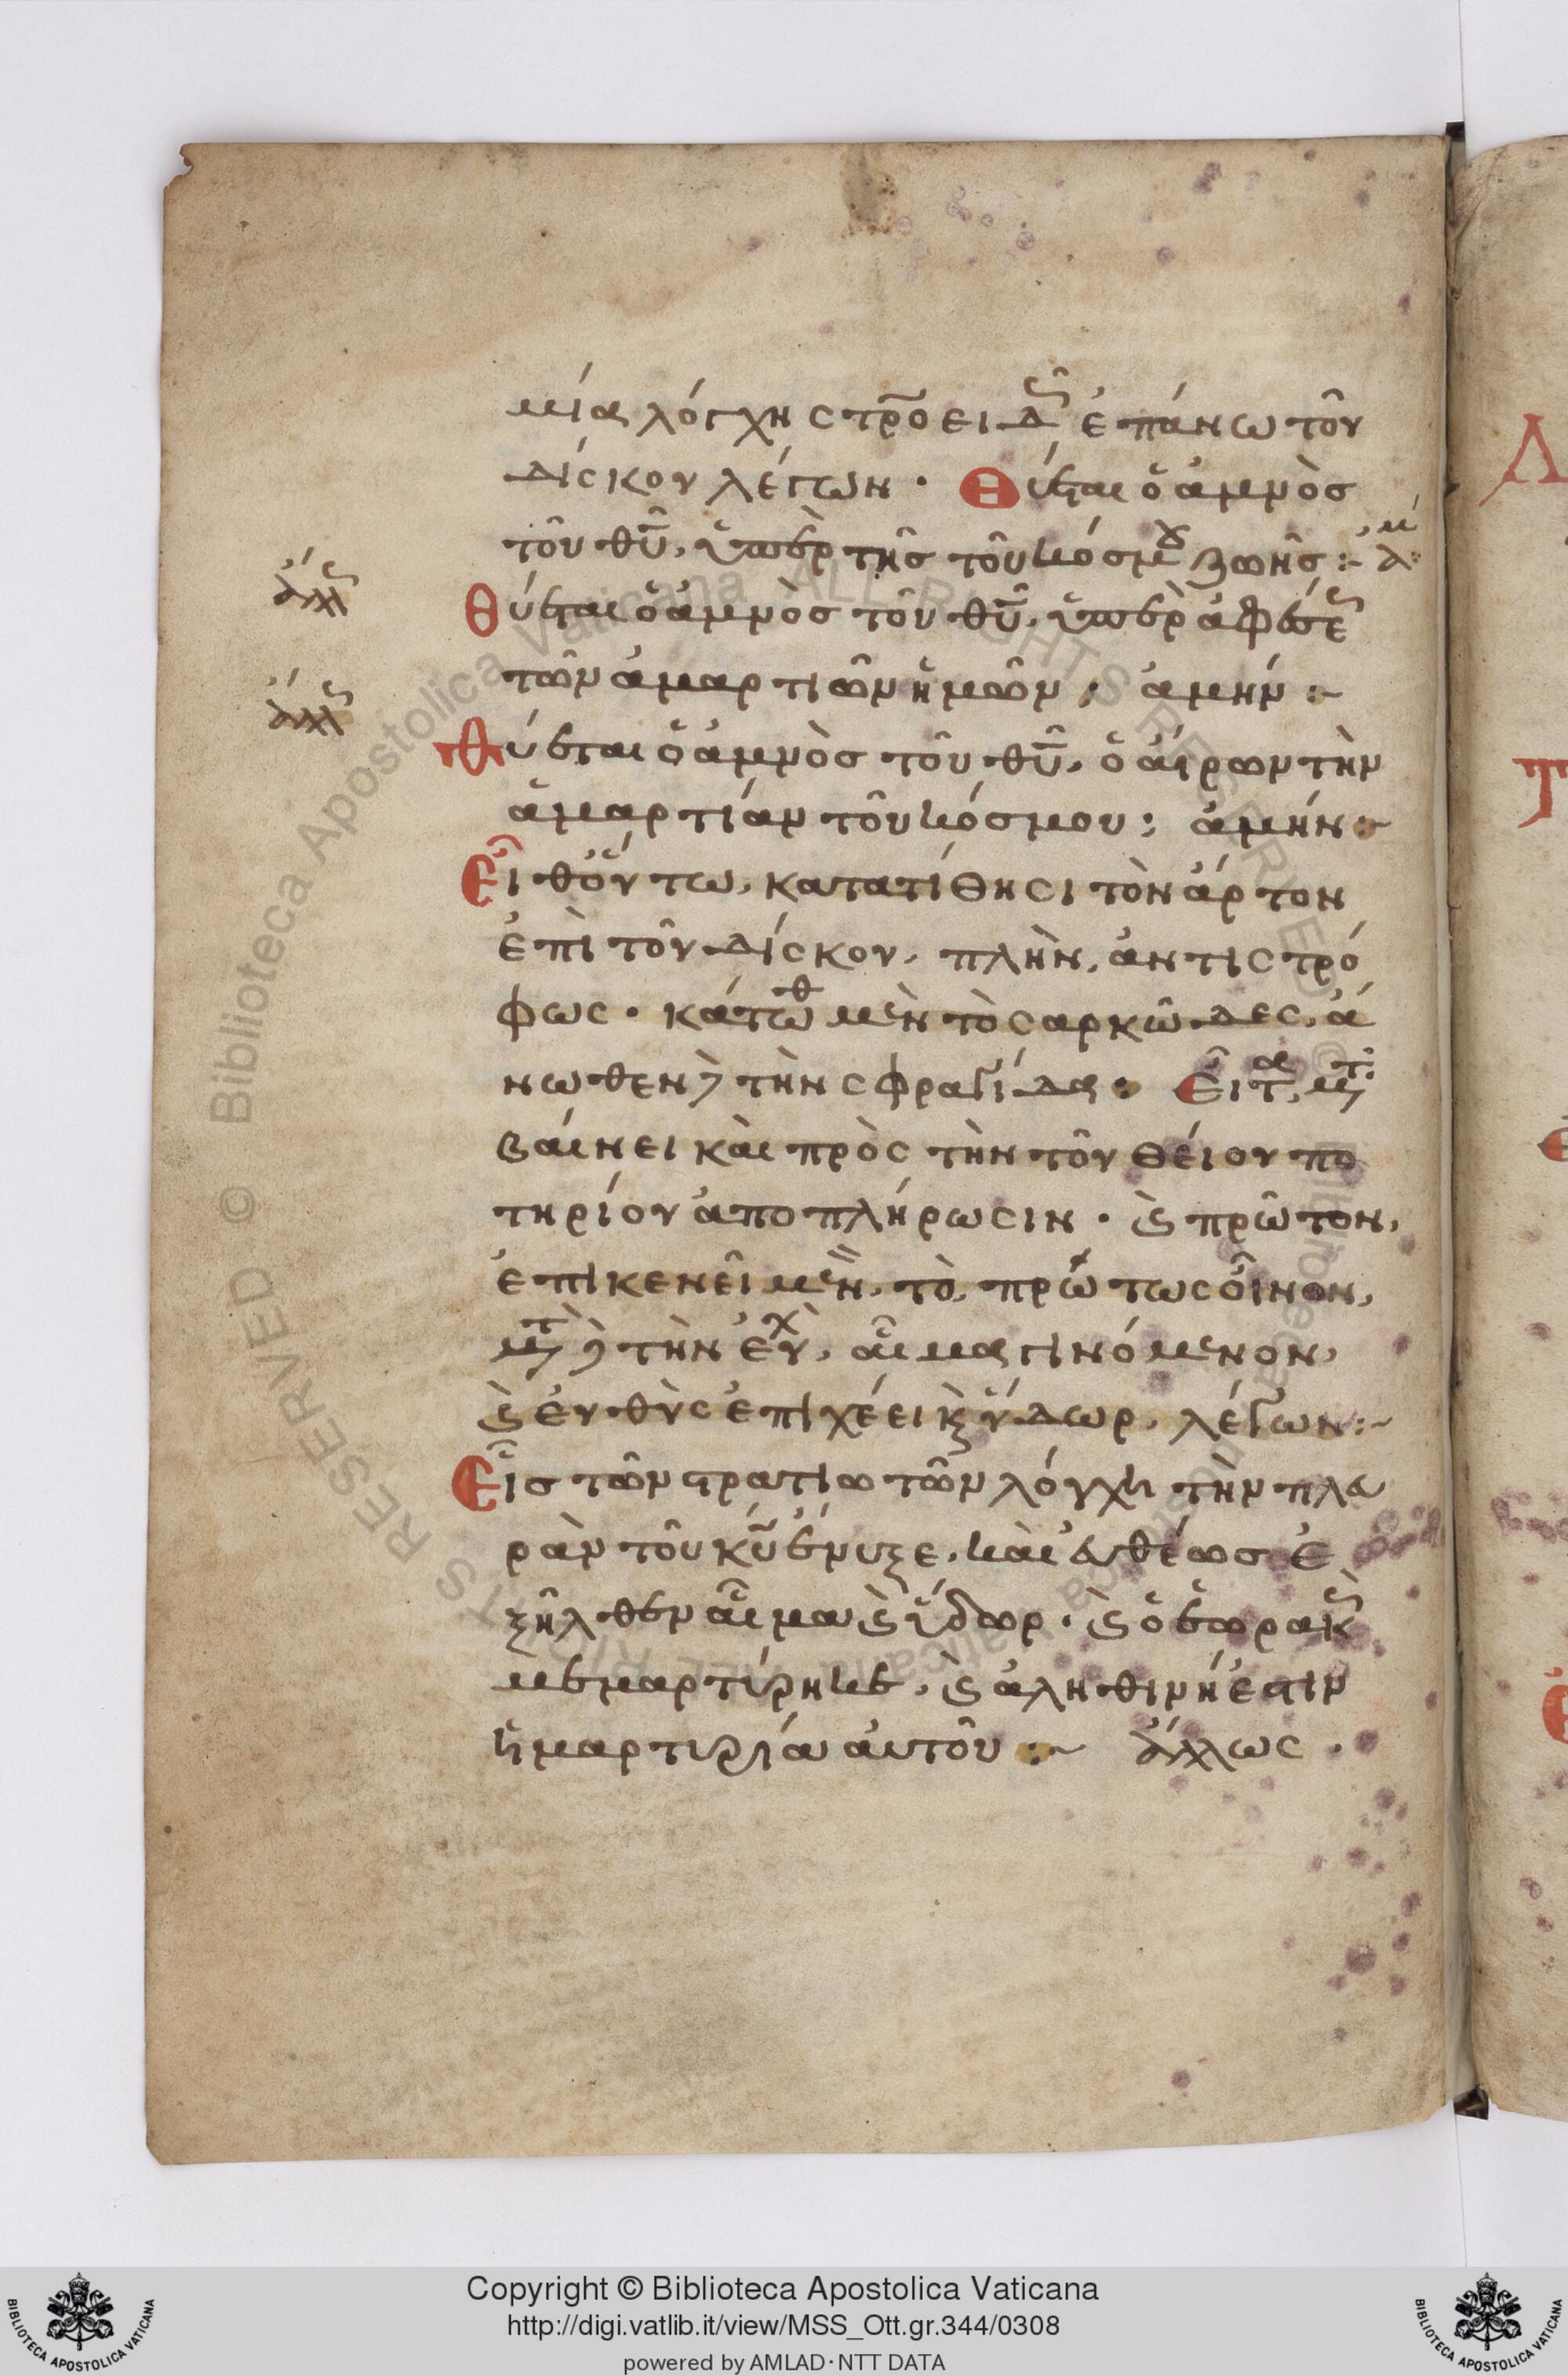 μίας λόγχης στ̅ροειδ ἐπάνω τοῦ
δίσκου λέγων · Θύεται ὁ ἀμνὸς
τοῦ θυ̅, ὑπὲρ τῆς τοῦ κόσμου ζωῆς :~ ἀμ
ἄλλως
Θύεται ὁ ἀμνὸς τοῦ θυ̅, ὑπὲρ ἀφέσε
τῶν ἁμαρτιῶν ἡμῶν · ἀμήν :~
ἄλλως
Θύεται ὁ ἀμνὸς τοῦ θυ̅, ὁ αἴρων τὴν
ἁμαρτίαν τοῦ κόσμου : ἀμήν :~
Εἶθ' οὕτω, κατατίθησι τὸν ἄρτον
ἐπὶ τοῦ δίσκου, πλὴν, ἀντιστρό
φως · κάτωθ μὲν τὸ σαρκῶδες, ἄ
νωθεν δὲ τὴν σφραγίδα : Εἶτα, μετ
βαίνει καὶ πρὸς τὴν τοῦ θείου πο
τηρίου ἀποπλήρωσιν · ϗ πρῶτον,
ἐπικενεῖ μὲν, τὸ, πρώτως οἶνον,
μετ δὲ τὴν εὐχ, αἷμα γινόμενον,
ϗ εὐθὺς ἐπιχέει ϗ ὕδωρ, λέγων :~
Εἷς τῶν στρατιωτῶν λόγχη τὴν πλευ
ρὰν τοῦ κυ̅ ἔνυξε, καὶ εὐθέως ἐ
ξῆλθεν αἷμα ϗ ὕδωρ · ϗ ὁ ἑωρακ
μεμαρτύρηκε, ϗ ἀληθινή ἐστιν
ἡ μαρτυρία αὐτοῦ :~ ἄλλως ·
Copyright © Biblioteca Apostolica Vaticana
http://digi.vatlib.it/view/MSS_Ott.gr.344/0308
powered by AMLAD · NTT DATA